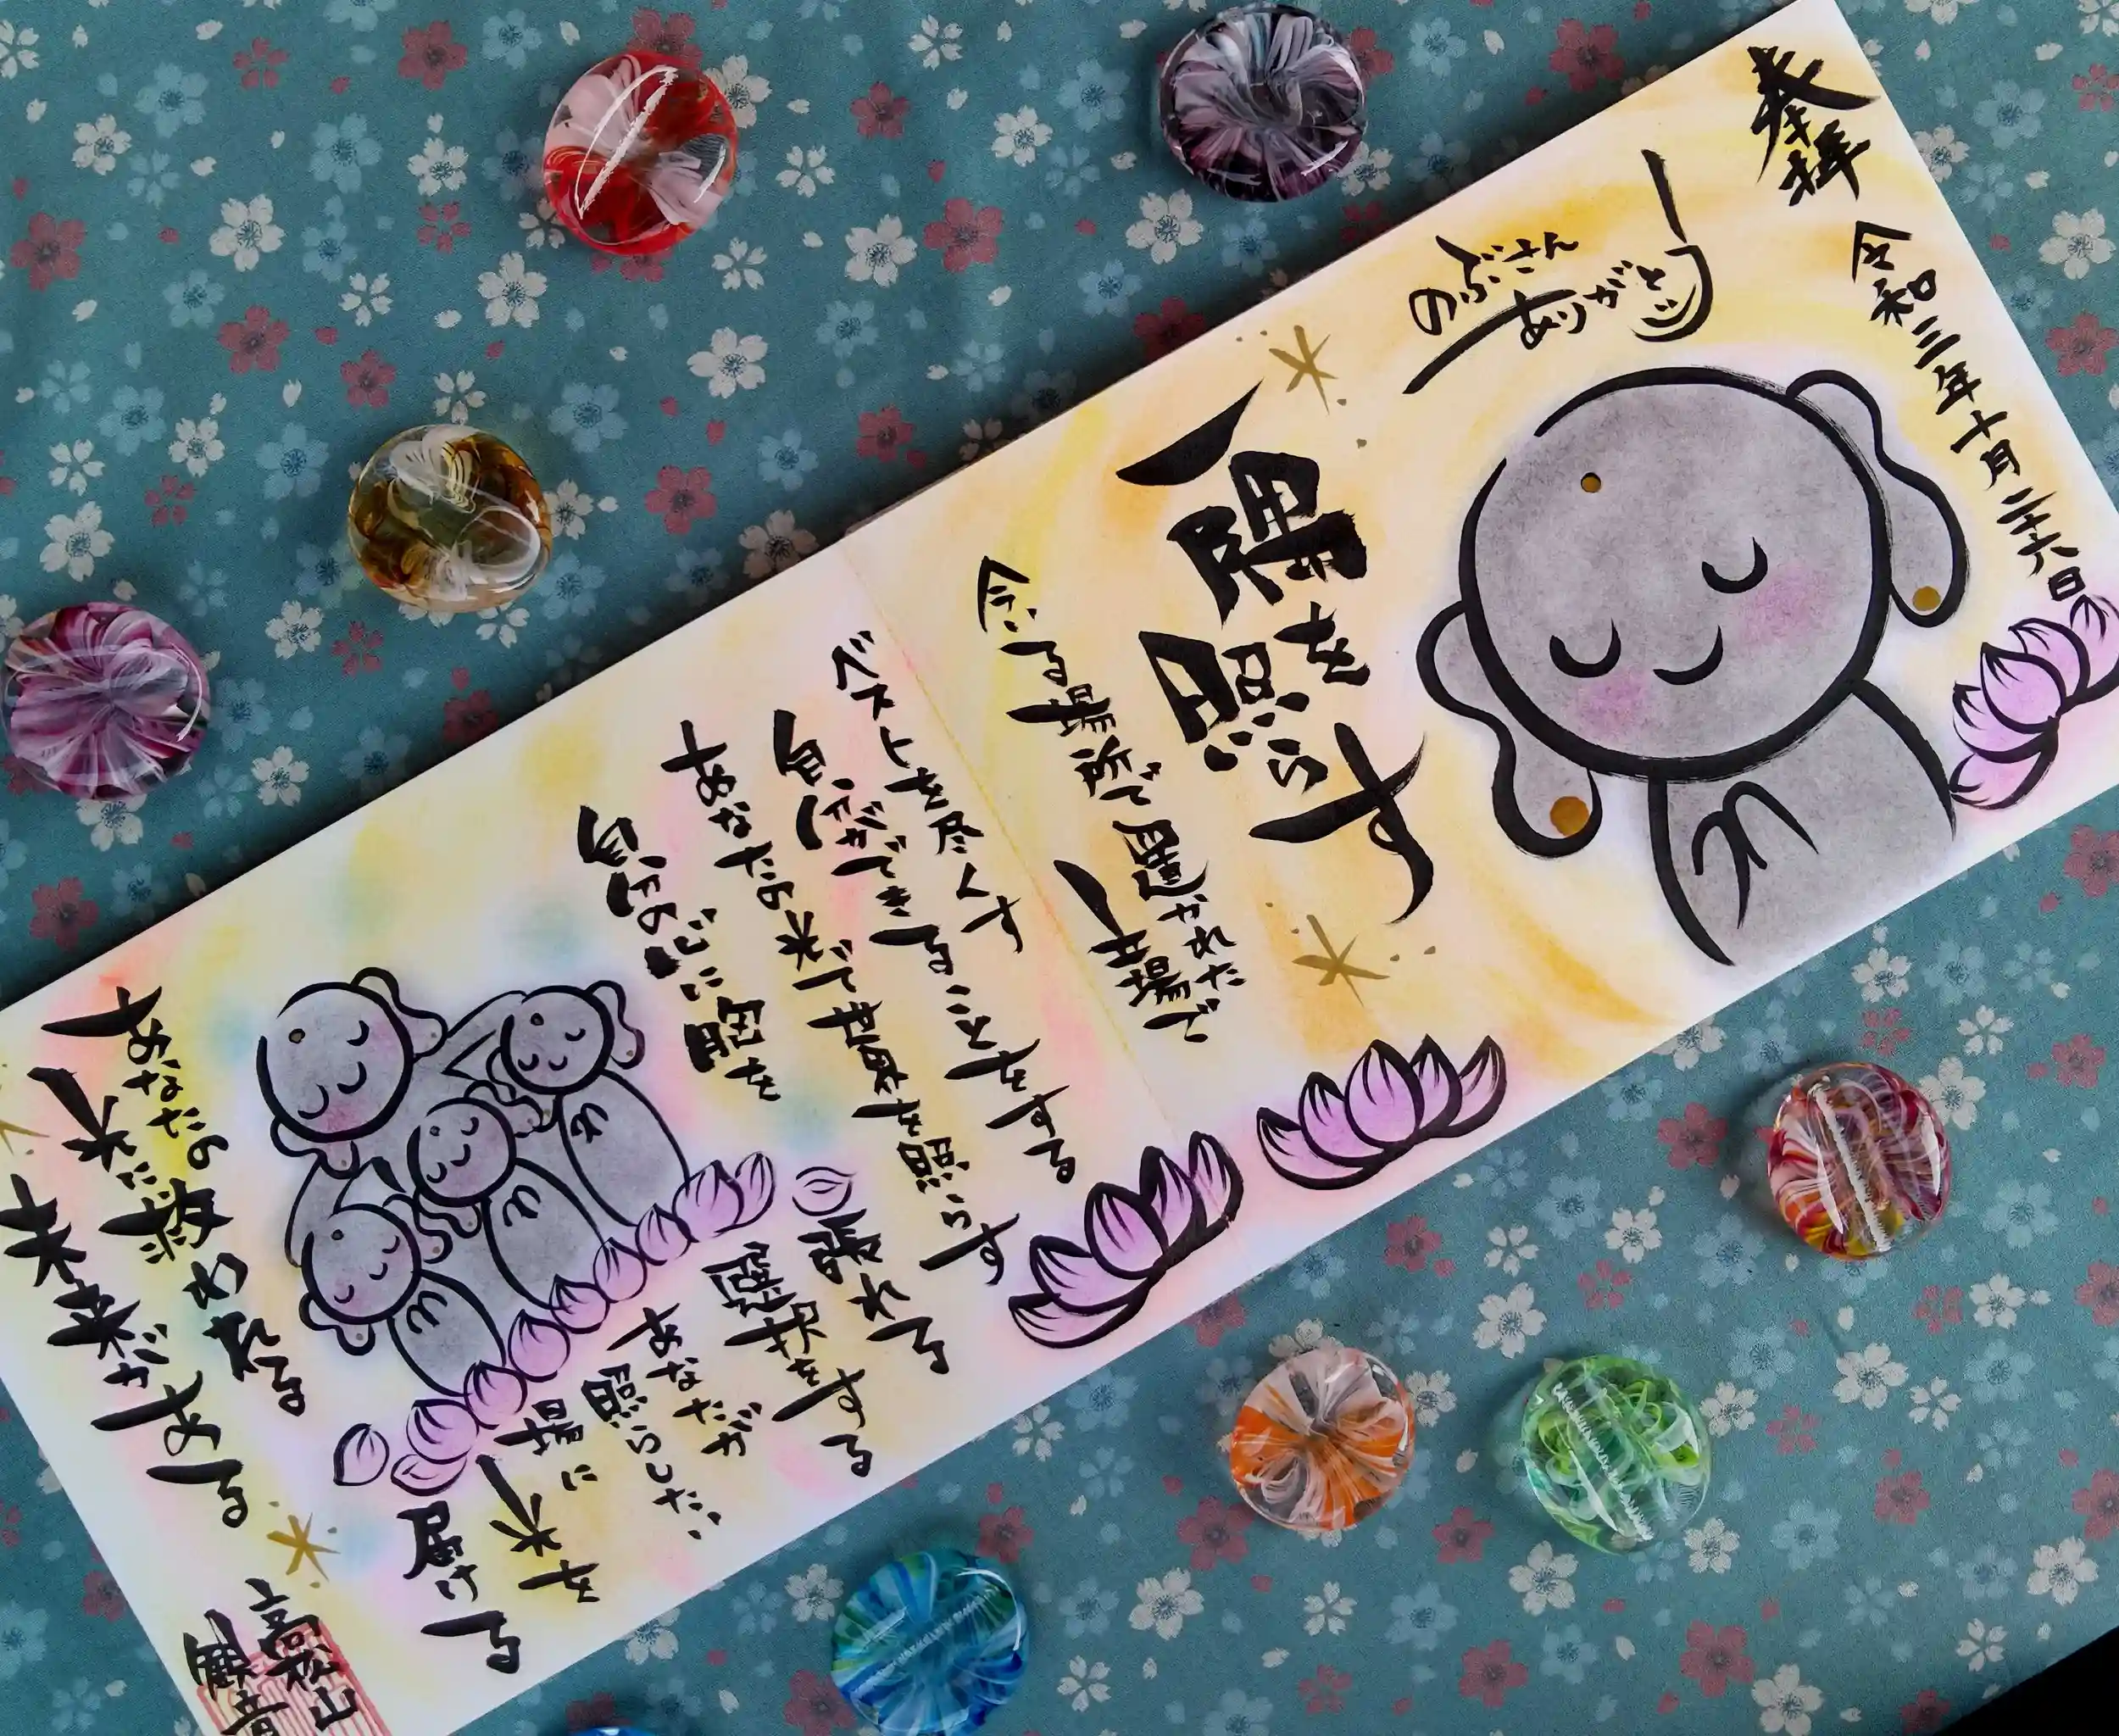 奉拝
令和三年十月二十六日
のぶさん
ありがとう
一隅を照らす
今いる場所で置かれた
一井場で
ベストを尽くす
自分ができることをする
あなたの光で世界を照らす
自分の心に胸を
張れる
選択をする
あなたが
照らしたい
場に
光を
届ける
あなたの
光に救われる
未来がある
高松山
観音